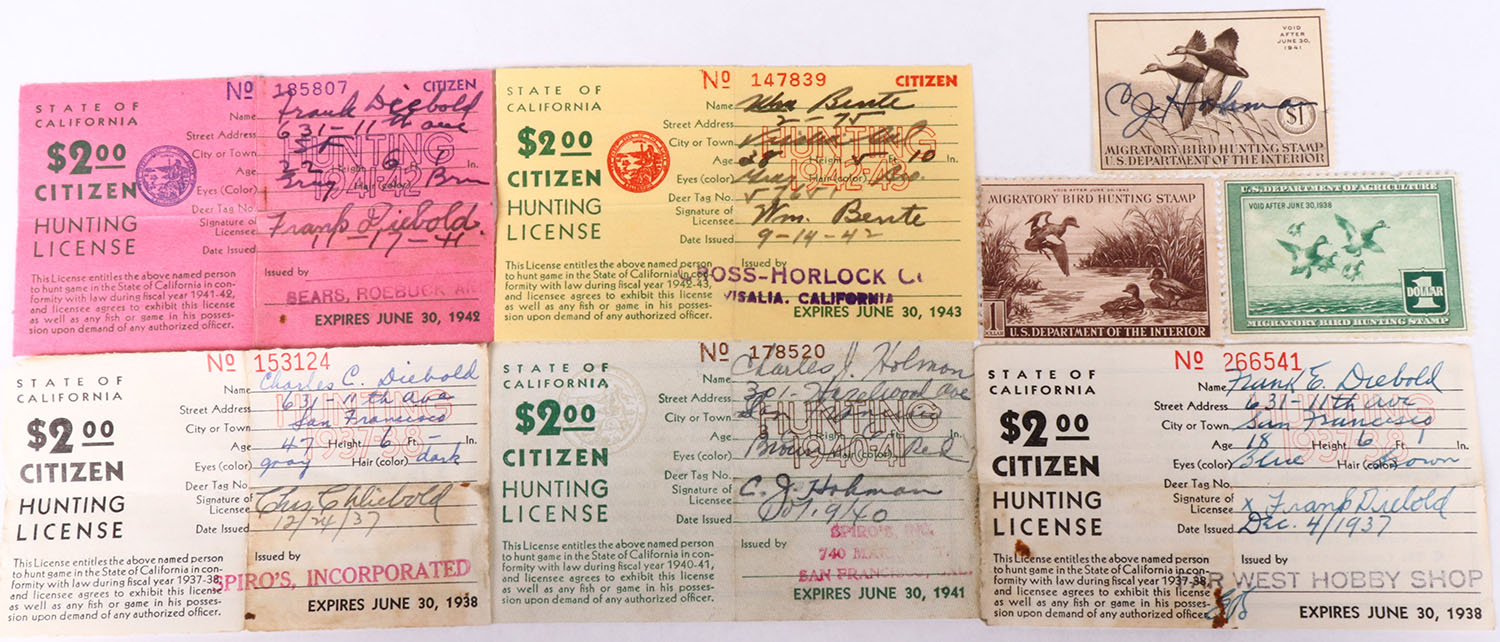 STATE OF
CALIFORNIA
$2.00
CITIZEN
HUNTING
LICENSE
No 185807 CITIZEN
Name Frank Diebold
Street Address 631-11th ave
City or Town SF
Age 22 Height 6 Ft. 1 In.
Eyes (Color) Hair (color) Brn
Deer Tag No.
Signature of
Licensee Frank Diebold.
Date Issued 11-17-41
HUNTING
1941-42
This License entitles the above named person
to hunt game in the State of California in con-
formity with law during fiscal year 1941-42,
and licensee agrees to exhibit this license
as well as any fish or game in his posses-
sion upon demand of any authorized officer.
Issued by
SEARS, ROEBUCK
EXPIRES JUNE 30, 1942
STATE OF
CALIFORNIA
$2.00
CITIZEN
HUNTING
LICENSE
No 147839 CITIZEN
Name Wm Bente
Street Address 2-75
City or Town Visalia
Age 28 Height 5 Ft. 10
Eyes (Color) Bro.
Deer Tag No.
Signature of
Licensee Wm. Bente
Date Issued 9-14-42
HUNTING
1942-43
This License entitles the above named person
to hunt game in the State of California in con-
formity with law during fiscal year 1942-43,
and licensee agrees to exhibit this license
as well as any fish or game in his posses-
sion upon demand of any authorized officer.
ROSS-HORLOCK
VISALIA, CALIFORNIA
EXPIRES JUNE 30, 1943
VOID
AFTER
JUNE 30,
1941
C J Hohman
$1
MIGRATORY BIRD HUNTING STAMP
U.S. DEPARTMENT OF THE INTERIOR
VOID AFTER JUNE 30, 1942
MIGRATORY BIRD HUNTING STAMP
1
DOLLAR
U.S. DEPARTMENT OF THE INTERIOR
U.S. DEPARTMENT OF AGRICULTURE
VOID AFTER JUNE 30, 1938
1
DOLLAR
MIGRATORY BIRD HUNTING STAMP
STATE OF
CALIFORNIA
$2.00
CITIZEN
HUNTING
LICENSE
No 153124
Name Charles C. Diebold
Street Address 631-11th Ave
City or Town San Francisco
Age 47 Height 6 Ft. - In.
Eyes (color) gray Hair (color) dark
Deer Tag No.
Signature of
Licensee Chas C Diebold
Date Issued 12/24/37
HUNTING
1937-38
This License entitles the above named person
to hunt game in the State of California in con-
formity with law during fiscal year 1937-38,
and licensee agrees to exhibit this license
as well as any fish or game in his posses-
sion upon demand of any authorized officer.
Issued by
SPIRO'S, INCORPORATED
EXPIRES JUNE 30, 1938
STATE OF
CALIFORNIA
$2.00
CITIZEN
HUNTING
LICENSE
No 178520
Name Charles J. Hohman
Street Address 301-Hazelwood Ave
City or Town
Age Height Ft. In.
Eyes (color) Brown Hair (color) Red
Deer Tag No.
Signature of
Licensee C. J. Hohman
Date Issued Oct. 9/40
HUNTING
1940-41
This License entitles the above named person
to hunt game in the State of California in con-
formity with law during fiscal year 1940-41,
and licensee agrees to exhibit this license
as well as any fish or game in his posses-
sion upon demand of any authorized officer.
Issued by
SPIRO'S, INC.
740
SAN FRANCISCO,
EXPIRES JUNE 30, 1941
STATE OF
CALIFORNIA
$2.00
CITIZEN
HUNTING
LICENSE
No 266541
Name Frank E. Diebold
Street Address 631-11th ave
City or Town San Francisco
Age 18 Height 6 Ft. 1 In.
Eyes (color) Blue Hair (color) Brown
Deer Tag No.
Signature of
Licensee x Frank Diebold
Date Issued Dec. 4/1937
HUNTING
1937-38
This License entitles the above named person
to hunt game in the State of California in con-
formity with law during fiscal year 1937-38,
and licensee agrees to exhibit this license
as well as any fish or game in his posses-
sion upon demand of any authorized officer.
Issued by
WEST HOBBY SHOP
EXPIRES JUNE 30, 1938